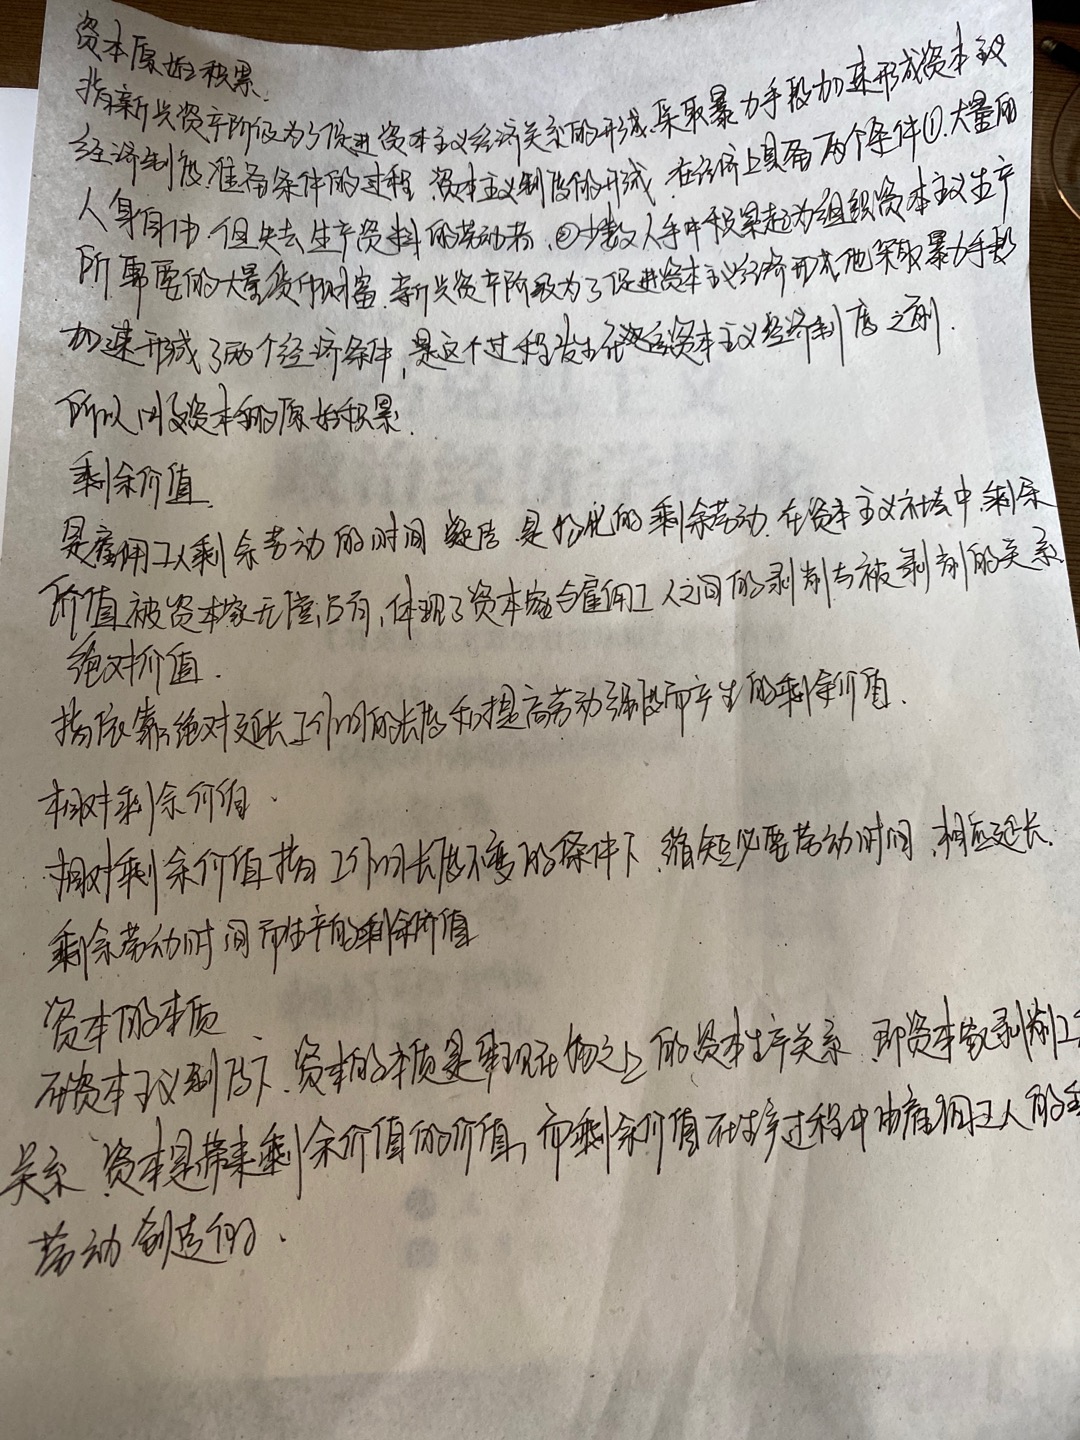 资本原始积累.
指新兴资产阶级为了促进资本主义经济关系的形成.采取暴力手段加速形成资本主义
经济制度.准备条件的过程.资本主义制度的形成.在经济上具备两个条件①.大量的
人身自由.但失去生产资料的劳动者.②少数人手中积累起为组织资本主义生产
所需要的大量货币财富.新兴资产阶级为了促进资本主义经济形成他采取暴力手段
加速形成了两个经济条件,是这个过程发生在资本主义经济制度之前.
所以叫资本的原始积累.
剩余价值
是雇佣工人剩余劳动的时间 是物化的剩余劳动.在资本主义社会中.剩余
价值被资本家无偿占有,体现了资本家与雇佣工人之间的剥削与被剥削的关系
绝对价值.
指依靠绝对延长工作日的长度和提高劳动强度而产生的剩余价值.
相对剩余价值.
相对剩余价值指工作日长度不变的条件下.缩短必要劳动时间.相应延长.
剩余劳动时间而生产的剩余价值
资本的本质
在资本主义制度下.资本的本质是体现在物之上的资本生产关系.即资本家剥削工
关系.资本是带来剩余价值的价值,而剩余价值在生产过程中由雇佣工人的
劳动创造的.